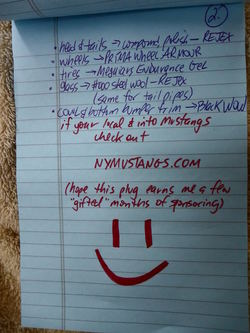 2
• head & tails → compound, polish → REJEX
• wheels → PRIMA WHEEL ARMOUR
• tires → Meguiars Endurance Gel
• glass → #0000 steel wool → REJEX
(same for tail pipes)
• cowl & bottom bumper trim → Black WOW
if your local & into Mustangs
check out
NYMUSTANGS.COM
(hope this plug earns me a few
"gifted" months of sponsoring)